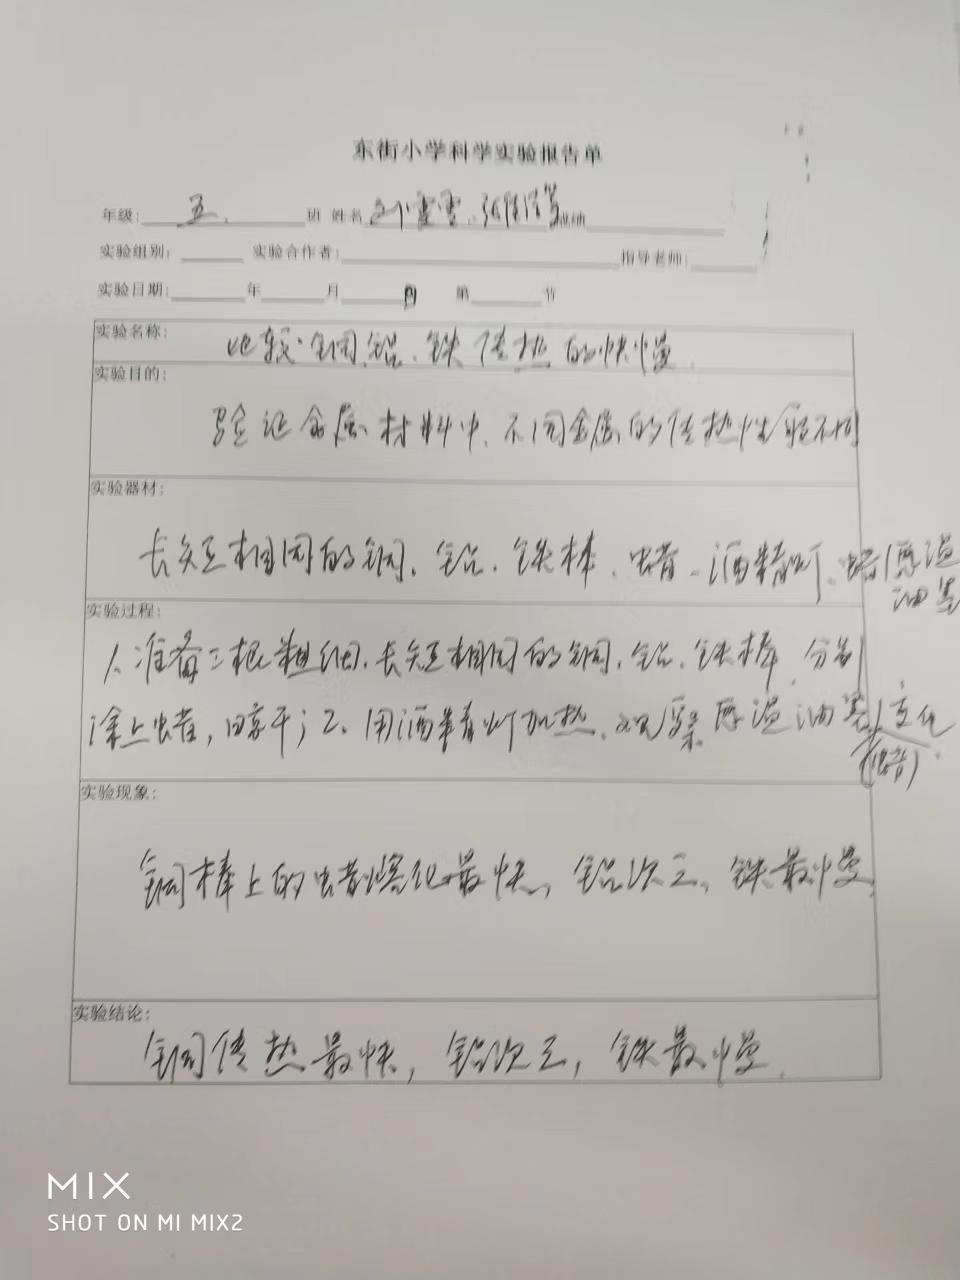 东街小学科学实验报告单
年级: 五. 班 姓名
实验组别: 实验合作者: 指导老师:
实验日期: 年 月 日 第 节
实验名称:
比较铜、铝、铁传热的快慢.
实验目的:
验证金属材料中、不同金属的传热性能不同
实验器材:
长短相同的铜、铝、铁棒、蜡、酒精灯、蜡(感温
油墨
实验过程:
1、准备三根粗细、长短相同的铜、铝、铁棒,分别
涂上蜡,晾干;2、用酒精灯加热、观察感温油墨变化
(蜡)
实验现象:
铜棒上的蜡熔化最快、铝次之、铁最慢
实验结论:
铜传热最快,铝次之,铁最慢.
MIX
SHOT ON MI MIX2